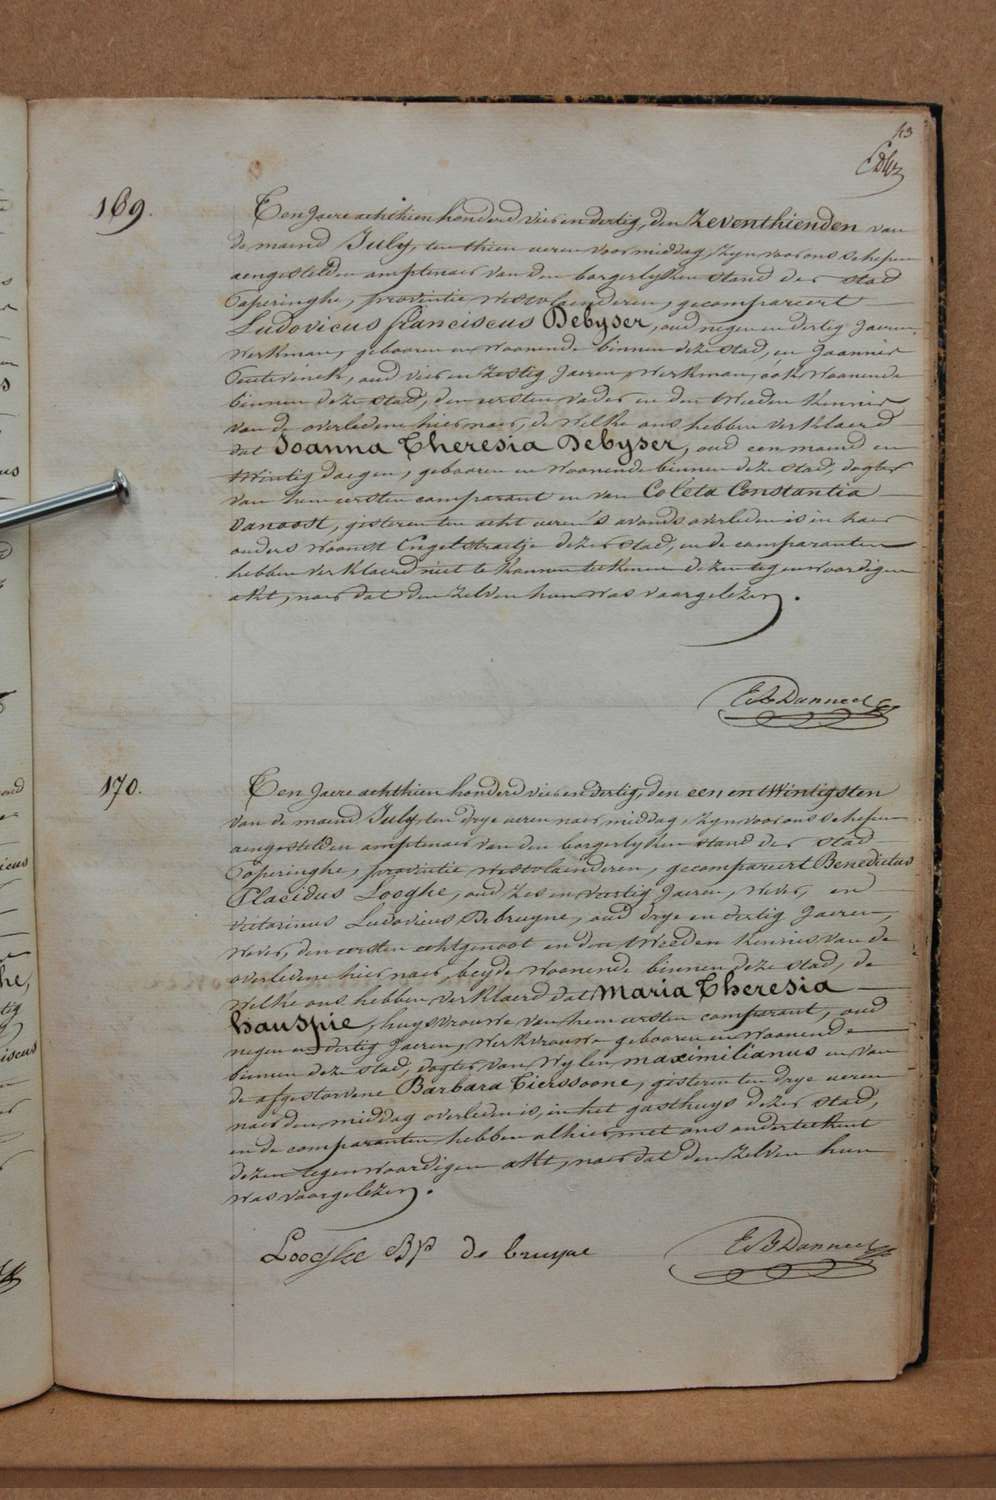 43
169.
Ten Jaere achthien honderd vier en dertig, den Zeventhienden van
de maend July, ten thien ueren voormiddag, zyn voor ons schepen
aengestelden amptenaer van den borgerlyken stand der stad
Poperinghe, provintie westvlaenderen, gecompareert
Ludovicus franciscus Debyser, oud negen en dertig Jaeren,
werkman, gebooren en woonende binnen deze stad, en Joannes
oud vier en zestig Jaeren, werkman, ook woonende
binnen deze stad, den eersten vader en den tweeden kennis
van de overledene hier naer, de welke ons hebben verklaerd
dat Joanna Theresia Debyser, oud een maend en
twintig daegen, gebooren en woonende binnen deze stad, dogter
van hem eersten comparant en van Coleta Constantia
vanoost, gisteren ten acht ueren 's avonds overleden is in haer
ouders woonst Engelstraetje dezer stad, en de comparanten
hebben verklaerd niet te konnen teekenen dezen tegenwoordigen
akt, naer dat den zelven hun was vaorgelezen.
E B Danneel
170.
Ten Jaere achthien honderd vier en dertig, den een en twintigsten
van de maend July, ten drye ueren naer middag, zyn voor ons schepen
aengestelden amptenaer van den borgerlyken stand der stad
Poperinghe, provintie westvlaenderen, gecompareert Benedictus
Placidus Looghe, oud zes en veertig Jaeren, wever, en
victorinus Ludovicus Debruyne, oud drye en dertig Jaeren,
wever, den eersten echtgenoot en den tweeden kennis van de
overledene hier naer, beyde woonende binnen deze stad, de
welke ons hebben verklaerd dat Maria Theresia
hauspie, huysvrouwe van hem eersten comparant, oud
negen en dertig Jaeren, werkvrouw gebooren en woonende
binnen deze stad, dogter van wylen maximilianus en van
de afgestorvene Barbara Tierssoone, gisteren ten drye ueren
naer den middag overleden is, in het gasthuys dezer stad,
en de comparanten hebben alhier met ons onderteekent
dezen tegenwoordigen akt, naer dat den zelven hun
was vaorgelezen.
Looghe BP de bruyne
E B Danneel